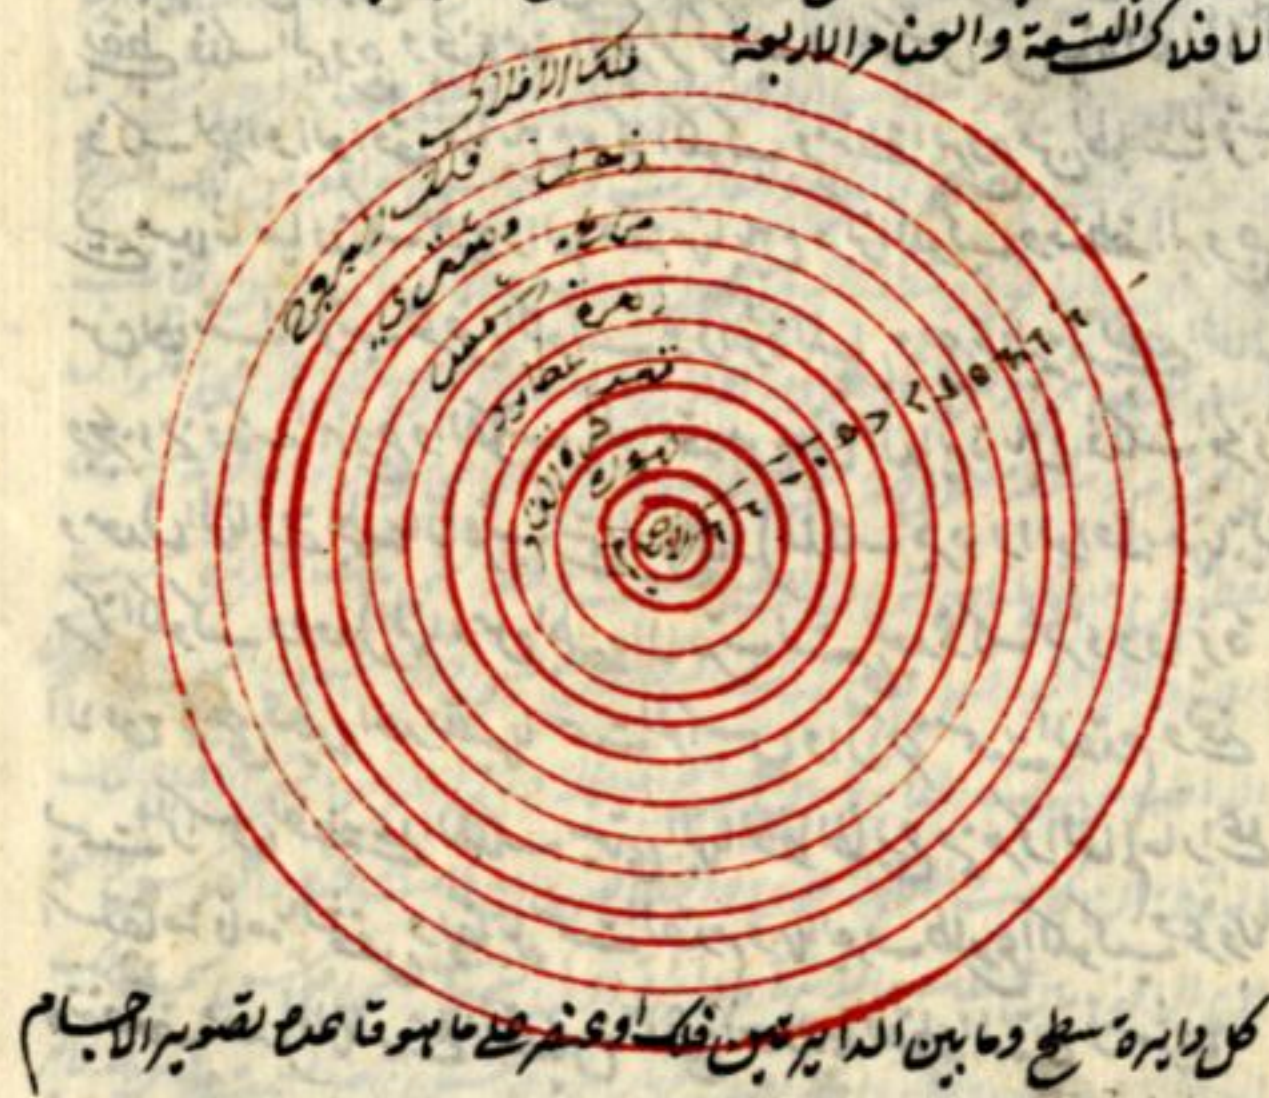 الافلاك التسعة والعناصر الاربعة
فلك الافلاك
فلك البروج
زحل
ومشتري
مريخ
شمس
زهرة
عطارد
قمر
كرة النار
الهواء
الارض
كل دايرة سطح وما بين الدايرتين فلك او عنصر على ما هو قاعدة تصوير الاجسام